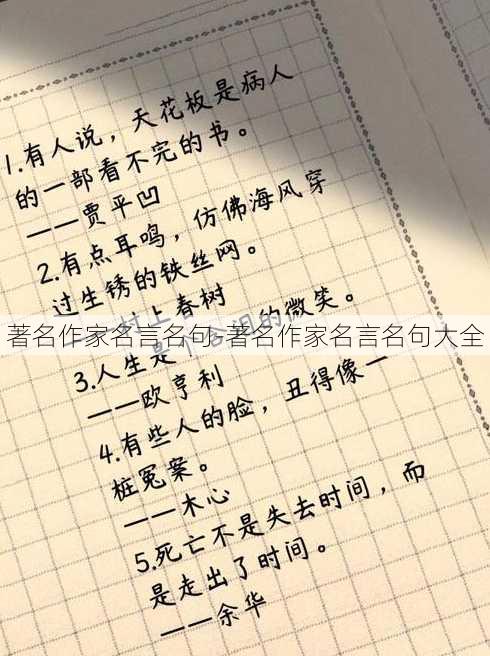 1.有人说，天花板是病人
的一部看不完的书。
——贾平凹
2.有点耳鸣，仿佛海风穿
过生锈的铁丝网。
村上春树
著名作家名言名句,著名作家名言名句大全
3.人生是 含泪的微笑。
——欧亨利
4.有些人的脸，丑得像一
桩冤案。
——木心
5.死亡不是失去时间，而
是走出了时间。
——余华